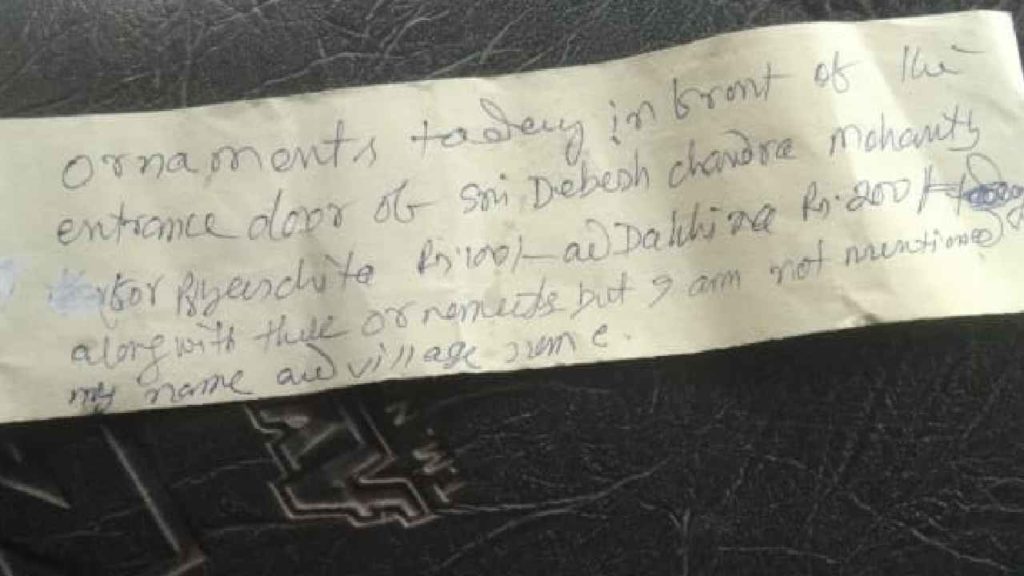 ornaments today in front of the
entrance door of Sri Debesh chandra Mohanty
for Pryeschita Rs.100/- and Dakhina Rs.200/-
along with thee ornaments but I am not mentioned
my name and village name.